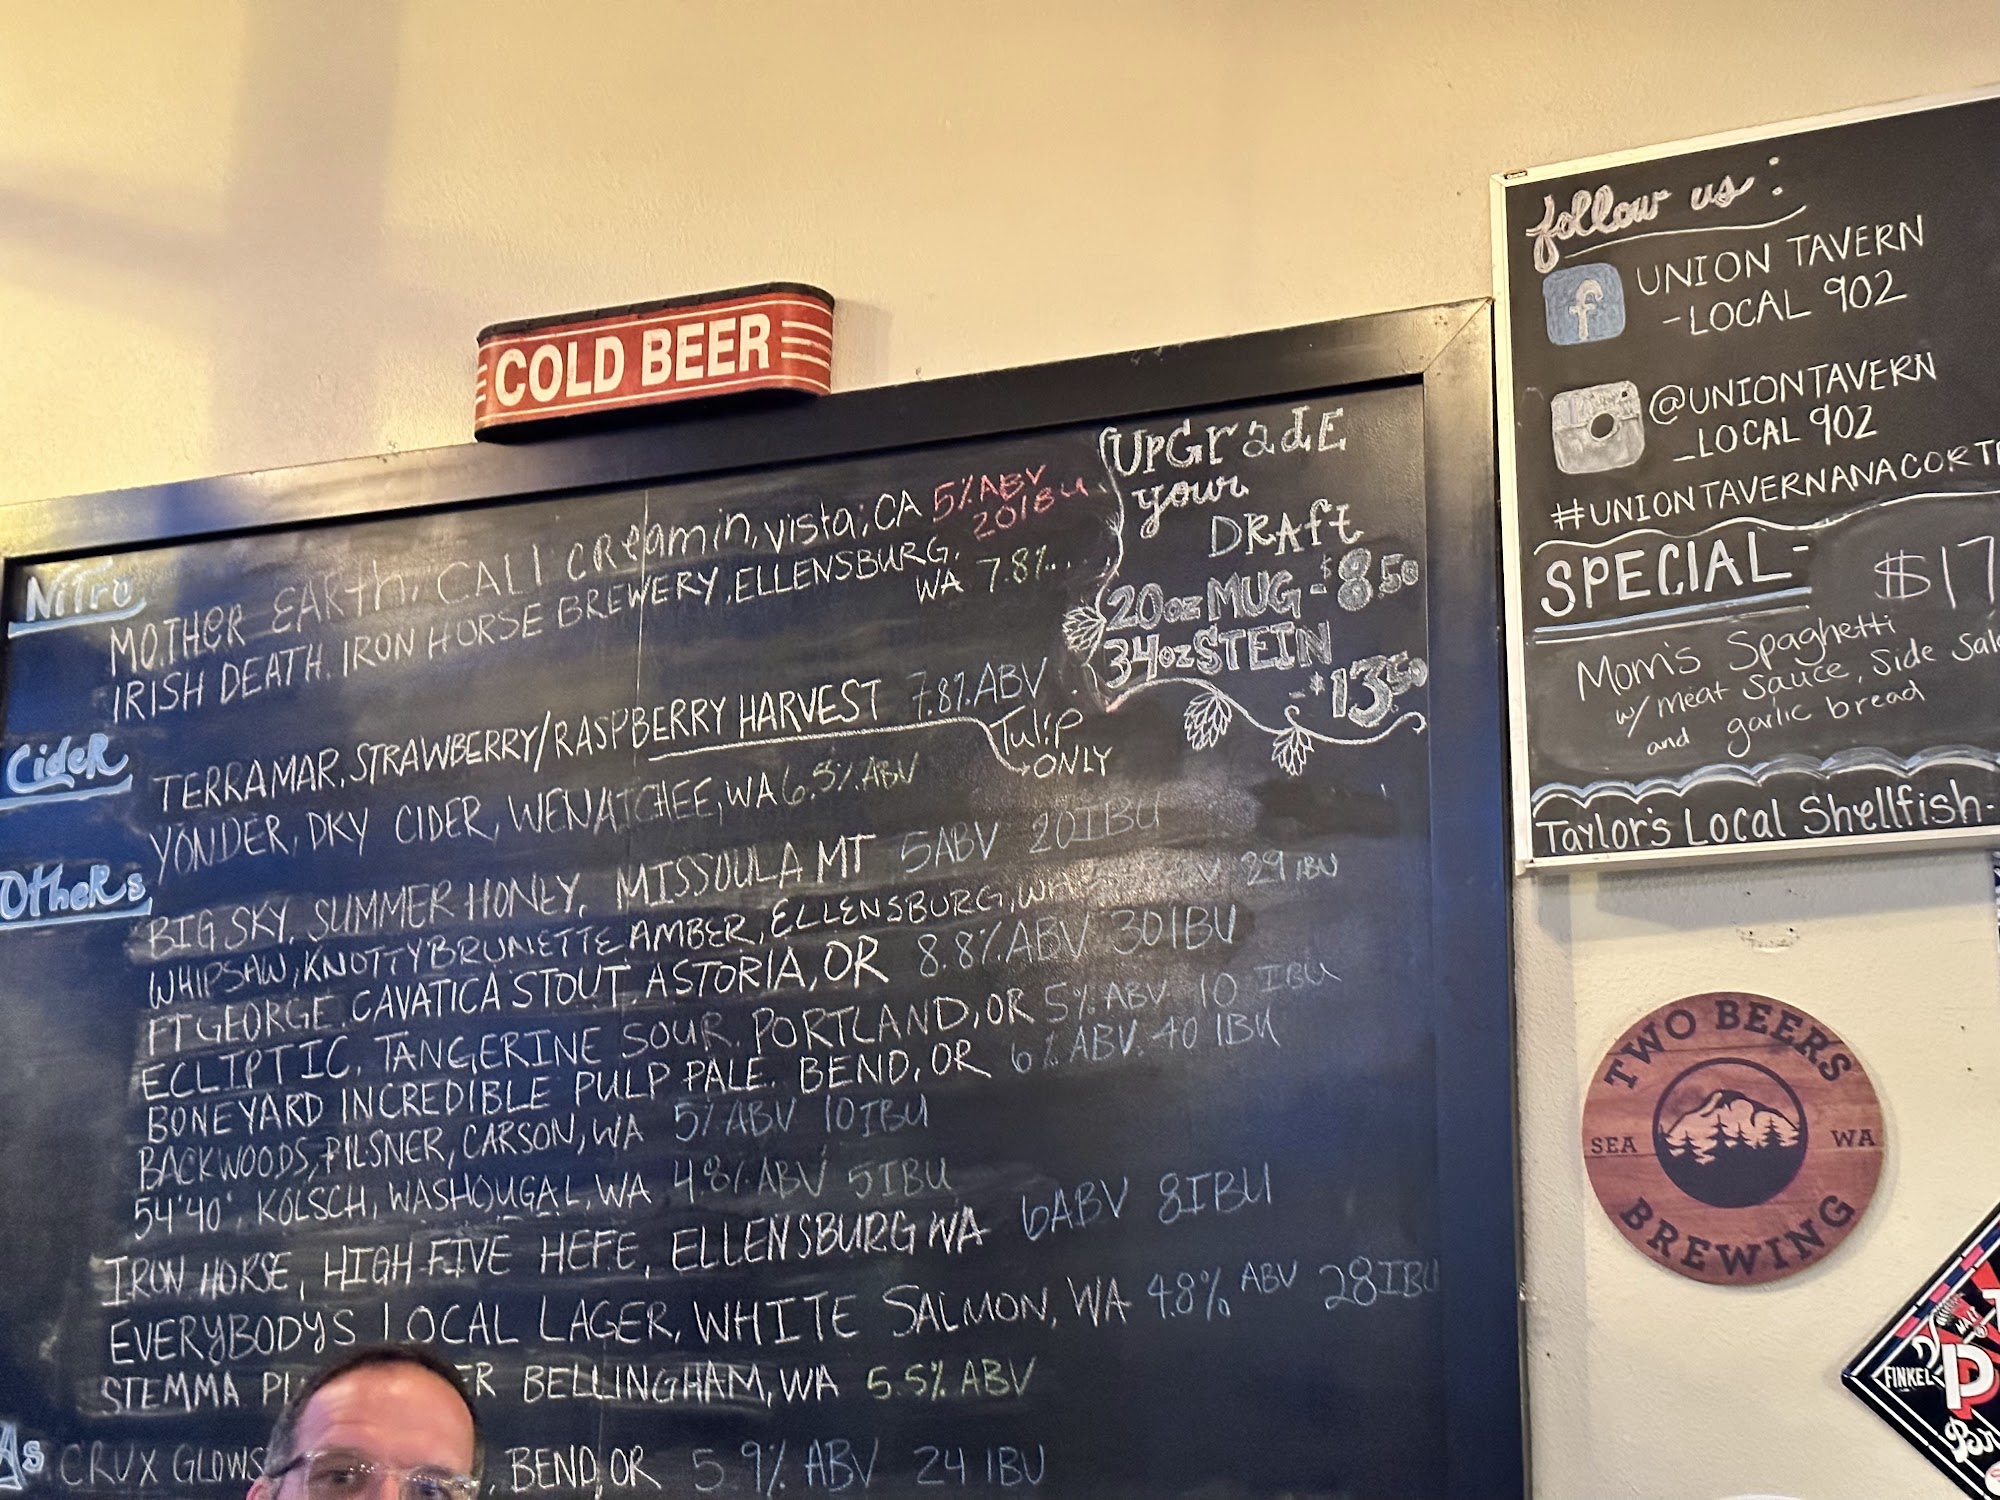 COLD BEER
Nitro
MOTHER EARTH, CALI CREAMIN, VISTA, CA 5% ABV
20IBU
IRISH DEATH. IRON HORSE BREWERY, ELLENSBURG,
WA 7.8%
Cider
TERRAMAR, STRAWBERRY/RASPBERRY HARVEST 7.8% ABV
Tulip
ONLY
YONDER, DKY CIDER, WENATCHEE, WA 6.5% ABV
Others
BIG SKY, SUMMER HONEY, MISSOULA MT 5ABV 20IBU
WHIPSAW, KNOTTY BRUNETTE AMBER, ELLENSBURG, WA 29 IBU
FT GEORGE. CAVATICA STOUT. ASTORIA, OR 8.8% ABV 30IBU
ECLIPTIC, TANGERINE SOUR. PORTLAND, OR 5% ABV 10 IBU
BONEYARD INCREDIBLE PULP PALE. BEND, OR 6% ABV. 40 IBU
BACKWOODS, PILSNER, CARSON, WA 5% ABV 10IBU
54°40', KOLSCH, WASHOUGAL, WA 4.8% ABV 5IBU
IRON HORSE, HIGH FIVE HEFE, ELLENSBURG WA 6ABV 8IBU
EVERYBODYS LOCAL LAGER, WHITE SALMON, WA 4.8% ABV 28IBU
STEMMA BELLINGHAM, WA 5.5% ABV
CRUX BEND, OR 5.9% ABV 24 IBU
UPGrADE
your
DRAft
20oz MUG - $8.50
34oz STEIN
- $13.50
follow us:
f UNION TAVERN
-LOCAL 902
@UNIONTAVERN
_LOCAL 902
SPECIAL-
Mom's Spaghetti
w/ meat sauce, side
and garlic bread
Taylor's Local Shellfish-
TWO BEERS
SEA WA
BREWING
FINKEL